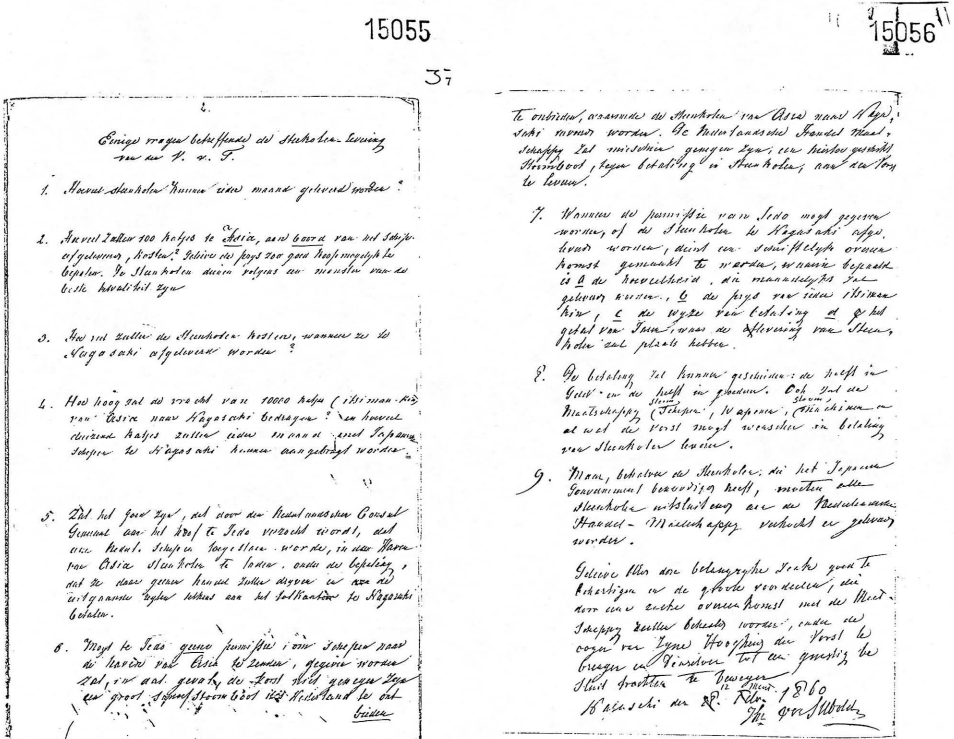 15055
2.
Einige vragen betreffende de Steenkolen-Levering
van den V. v. F.
1. Hoeveel steenkolen kunnen ieder maand geleverd worden?
2. Hoeveel zullen 100 katjes te Asia, aan boord van het schip
afgeleverd, kosten? Gelieve de prijs zoo goed koop mogelyk te
bepalen. De Steenkolen dienen volgens een monster van de
beste kwaliteit zyn
3. Hoe veel zullen de Steenkolen kosten, wanneer ze te
Nagasaki afgeleverd worden?
4. Hoe hoog zal de vracht van 10000 katjes (itsiman-kin)
van Asia naar Nagasaki bedragen? en hoeveel
duizend katjes zullen ieder maand met Japansche
schepen te Nagasaki kunnen aangebragt worden.
5. Zal het goed zyn, dat door den Nederlandschen Consul
Generaal aan het hof te Jedo verzocht wordt, dat
een Nederl. schepen toegestaan worde, in den Haven
van Asia steenkolen te laden, onder de bepaling,
dat ze daar geenen handel zullen dryven en van de
uitgaande regten telkens aan het tolkantoor te Nagasaki
betalen.
6. Mogt te Jedo geene permissie om schepen naar
de haven van Asia te zenden, gegeven worden
zal, in dat geval, de Vorst niet genegen zyn
een groot stoomboot uit Nederland te ont
bieden
15056
te ontbieden, waarmede de steenkolen van Asia naar Naga-
saki vervoerd worden. De Nederlandsche Handel Maat-
schappy zal misschien genegen zyn, een hiertoe geschikt
Stoomboot, tegen betaling in Steenkolen, aan den Vorst
te leveren.
7. Wanneer de permissie van Jedo mogt gegeven
worden, of de steenkolen te Nagasaki afge-
leverd worden, dient een schriftelyk overeen
komst gemaakt te worden, waarin bepaald
is a de hoeveelheid, die maandelyks zal
geleverd worden, b de prys van ieder itsiman
kin, c de wyze van betaling d het
getal van Jaren, waar de aflevering van Steen-
kolen zal plaats hebben.
8. De betaling zal kunnen geschieden: de helft in
Geld en de helft in goederen. Ook zal de
Maatschappy (Stoom Schepen, Wapenen, Stoom Machinen en
al wat de Vorst mogt wenschen in betaling
van steenkolen leveren.
9. Maar, behalve de Steenkolen, die het Japansch
Gouvernement benoodigd heeft, moeten alle
steenkolen uitsluitend aan de Nederlandsche
Handel-Maatschappy verkocht en geleverd
worden.
Gelieve deze belangryke zaak goed te
behartigen en de groote voordeelen, die
door eene zulke overeenkomst met de Maat-
schappy zullen behaald worden, onder de
oogen van Zyne Hoogheid den Vorst te
brengen en Dezelve tot een gunstig be
sluit trachten te bewegen
Nagasaki den 12 1860
von Siebold